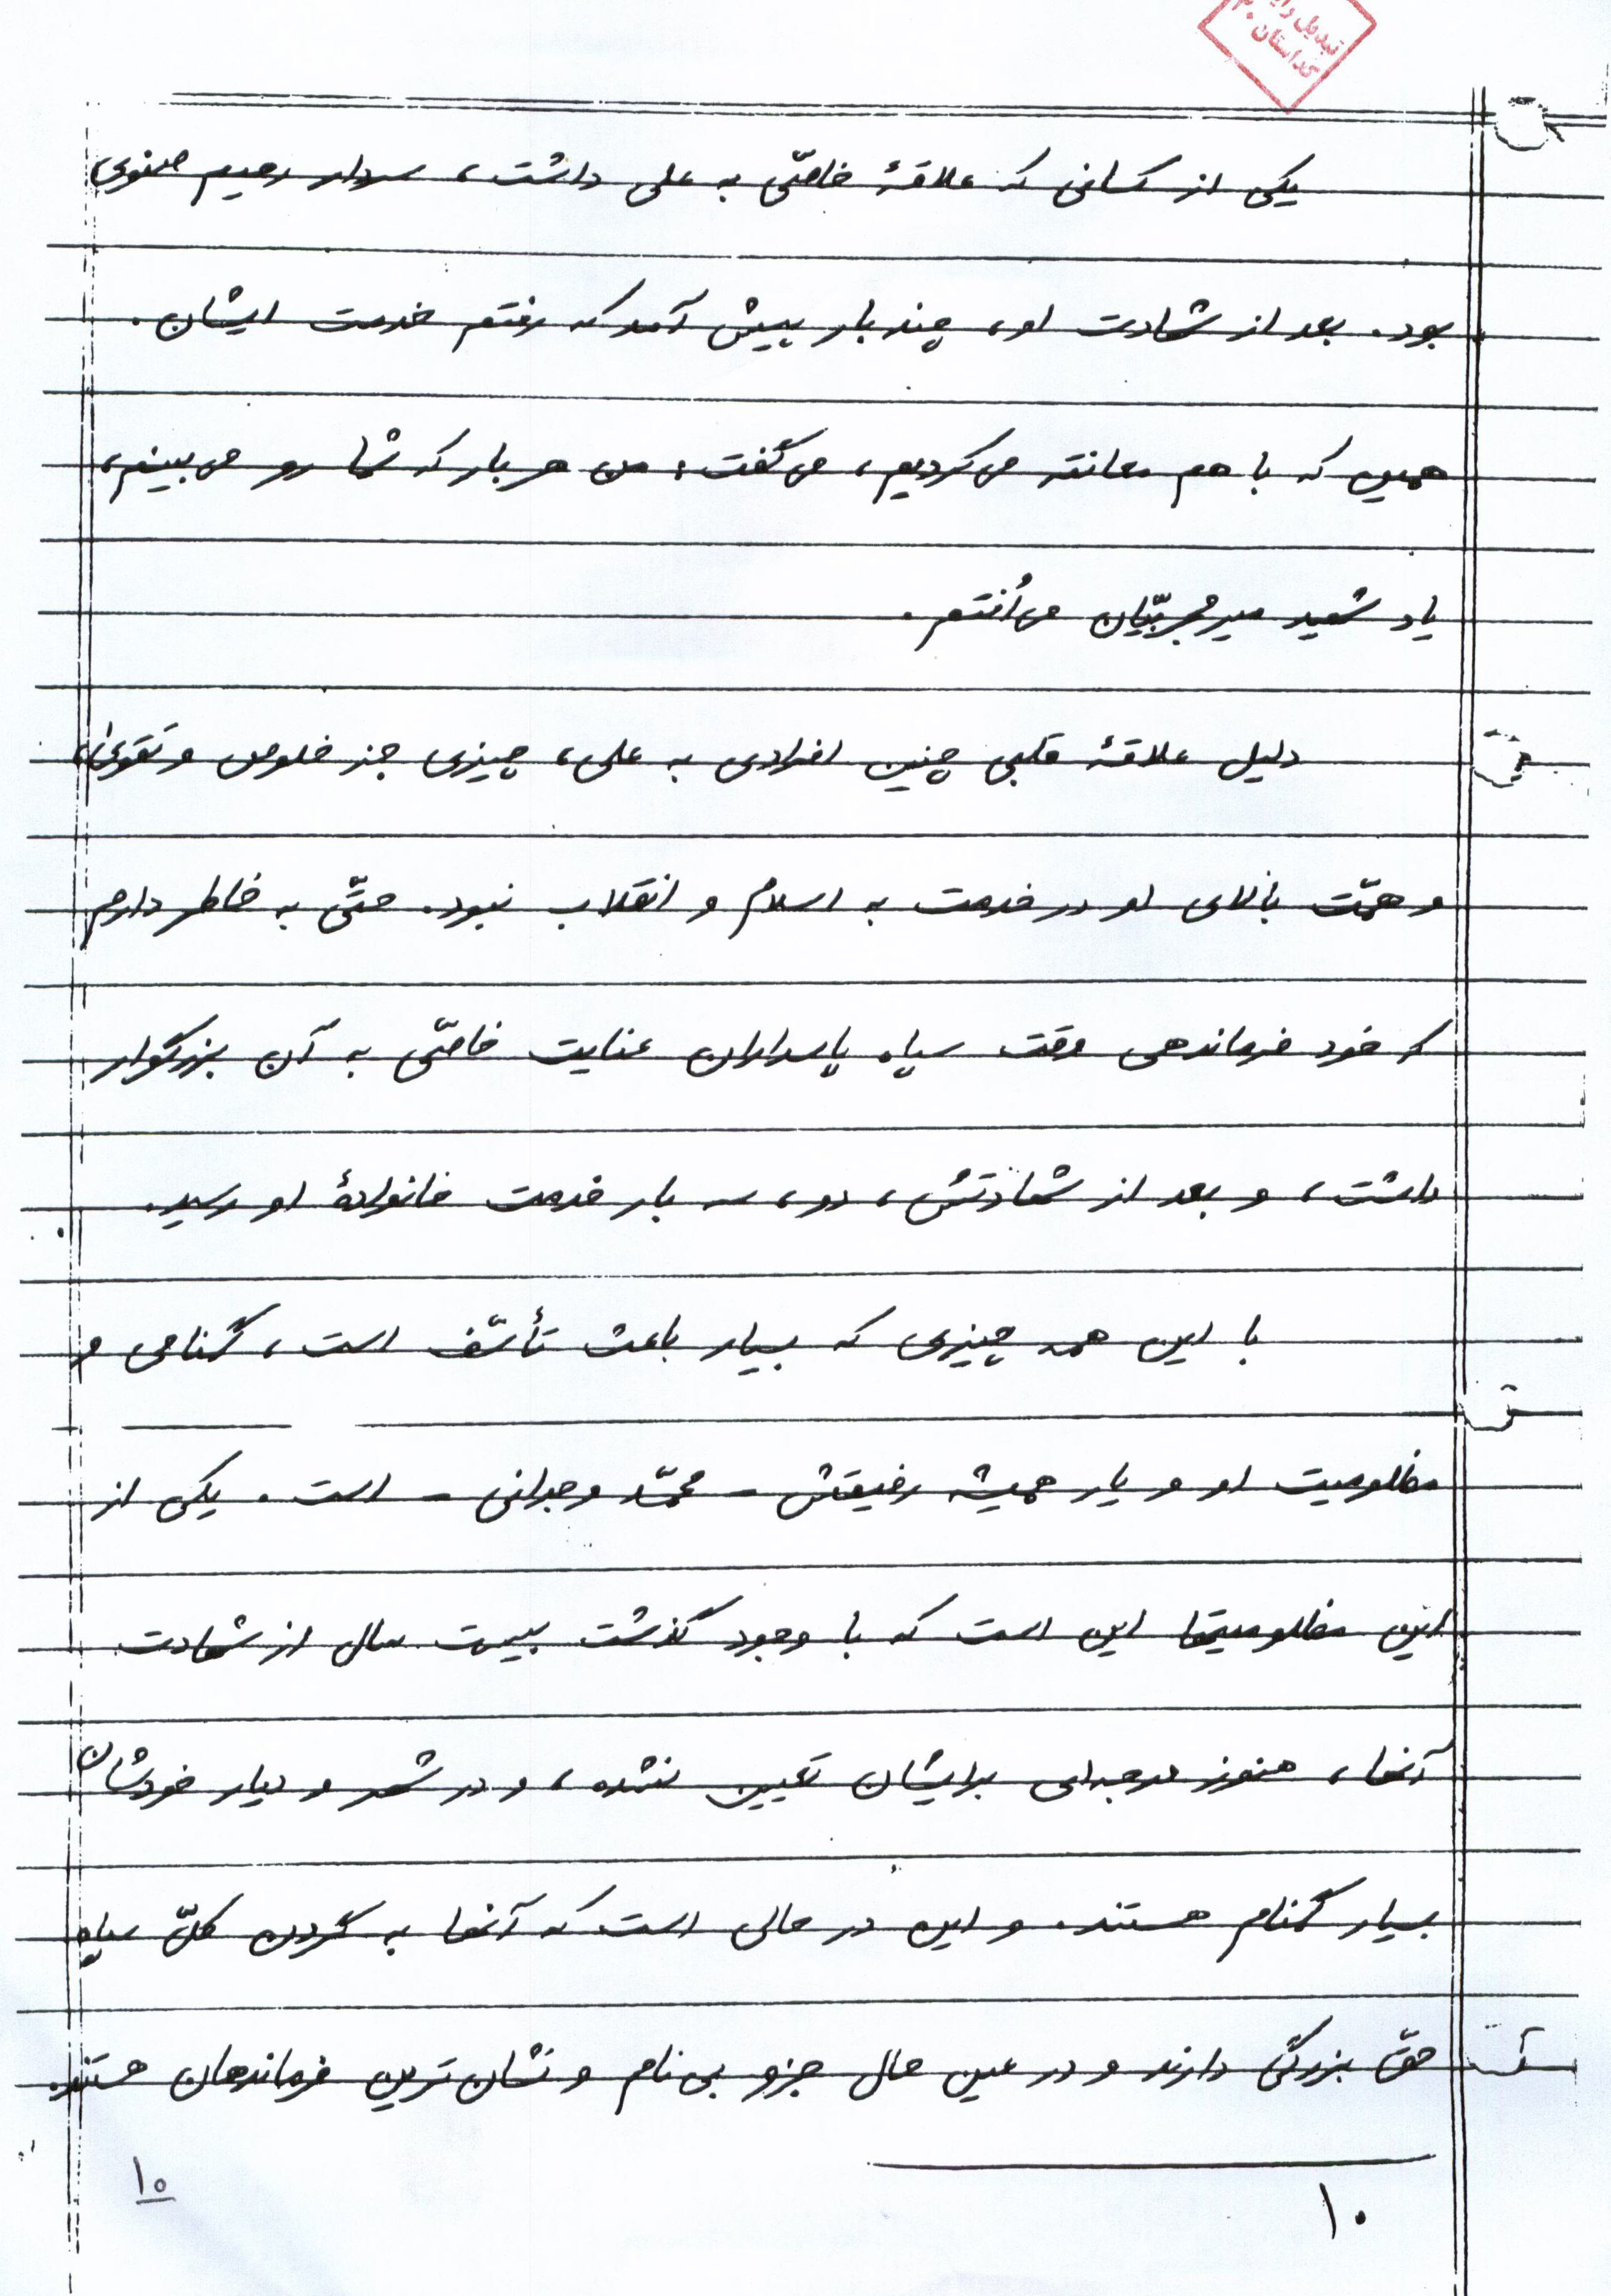 تبدیل
کد استان ۲۰
یکی از کسانی که علاقهٔ خاصّی به علی داشت، سردار رحیم صفوی
بود. بعد از شهادت او، چند بار پیش آمد که رفتم خدمت ایشان.
همین که با هم معانقه می‌کردیم، می‌گفت: من هر بار که شما رو می‌بینم،
یاد شهید میرمجربیّان می‌اُفتم.
دلیل علاقهٔ قلبی چنین افرادی به علی، چیزی جز خلوص و تقویٰ،
و همّت بالای او در خدمت به اسلام و انقلاب نبود. حتّی به خاطر دارم
که خود فرماندهی وقت سپاه پاسداران عنایت خاصّی به آن بزرگوار
داشت، و بعد از شهادتش، دو، سه بار خدمت خانوادهٔ او رسید.
با این همه چیزی که بسیار باعث تأسّف است، گمنامی و
مظلومیت او و یار همیشه رفیقش - محمّد وجدانی - است. یکی از
این مظلومیتها این است که با وجود گذشت بیست سال از شهادت
آنها، هنوز درجه‌ای برایشان تعیین نشده، و در شهر و دیار خودشان
بسیار گمنام هستند. و این در حالی است که آنها به گردن کلّ سپاه
حقّ بزرگی دارند و در عین حال جزو بی‌نام و نشان‌ترین فرماندهان هستند
۱۰
۱۰